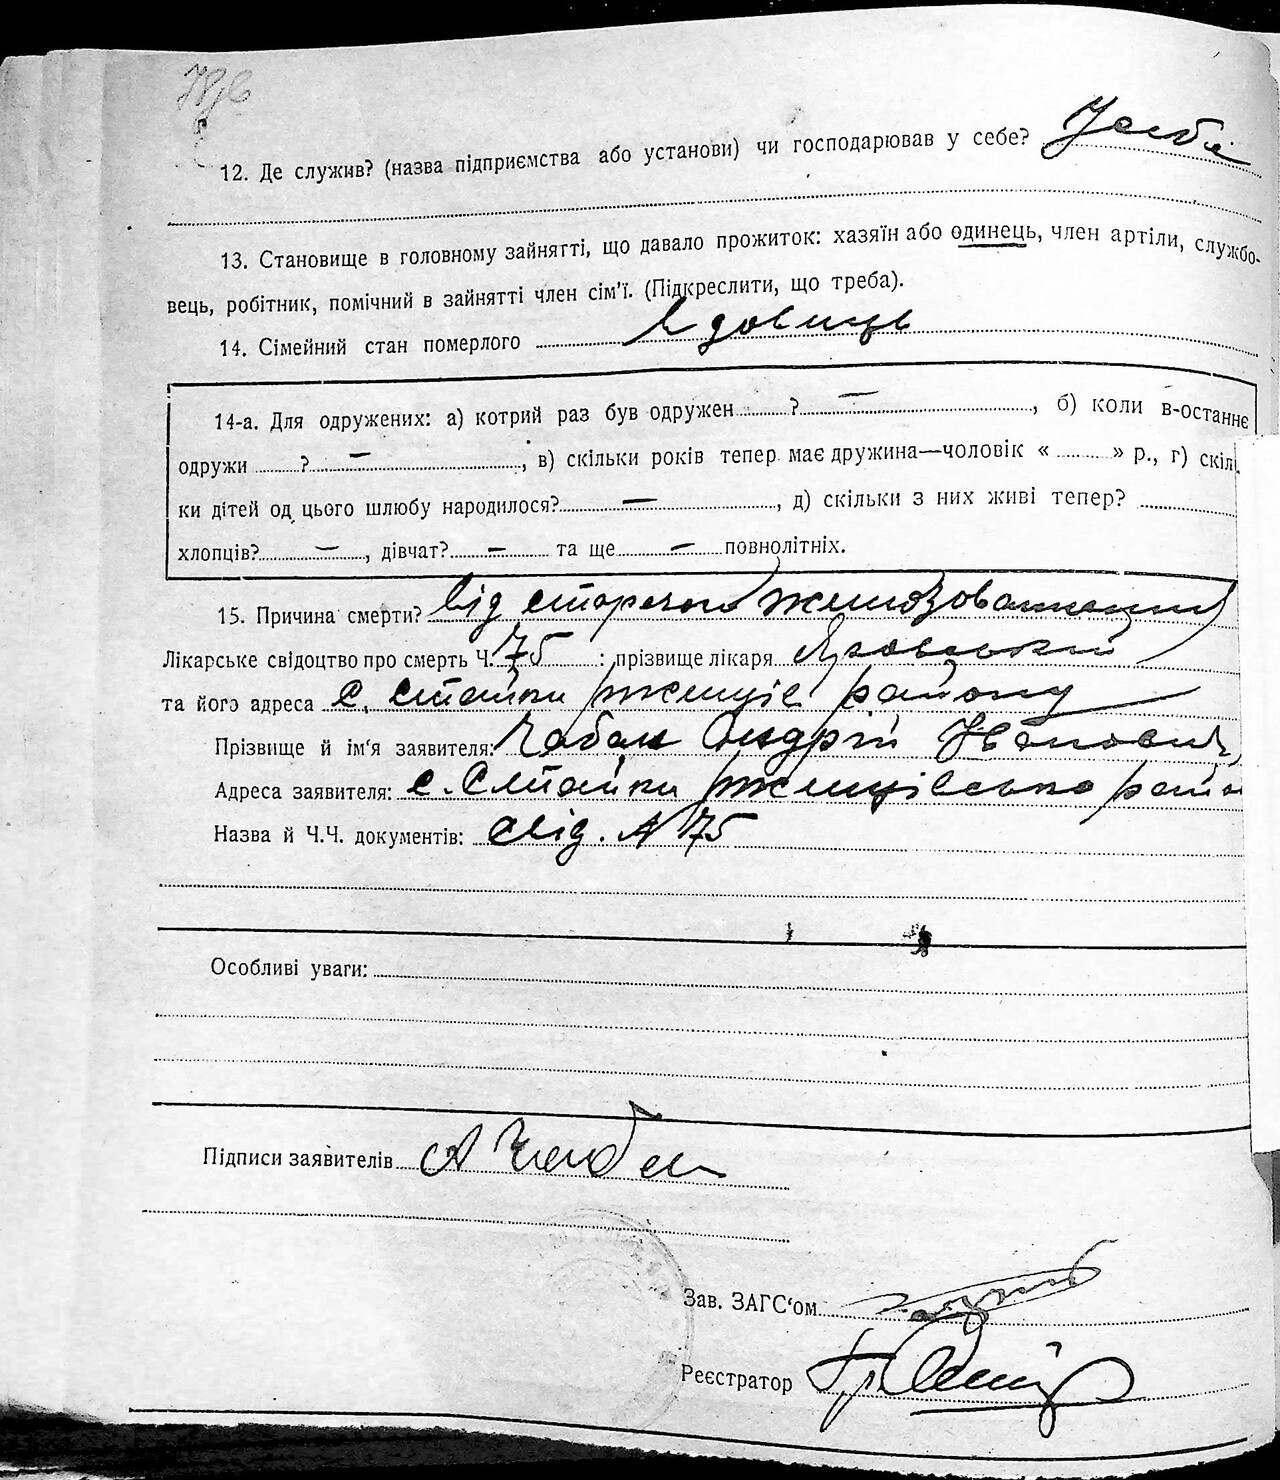 12. Де служив? (назва підприємства або установи) чи господарював у себе? У себе
13. Становище в головному зайнятті, що давало прожиток: хазяїн або одинець, член артіли, службо-
вець, робітник, помічний в зайнятті член сім'ї. (Підкреслити, що треба).
14. Сімейний стан померлого вдовець
14-а. Для одружених: а) котрий раз був одружен ? —, б) коли в-останнє
одружи ? —, в) скільки років тепер має дружина—чоловік « » р., г) скіл
ки дітей од цього шлюбу народилося? —, д) скільки з них живі тепер?
хлопців? —, дівчат? — та ще — повнолітніх.
15. Причина смерти? Від старечого
Лікарське свідоцтво про смерть Ч. 75 : прізвище лікаря
та його адреса с. Стайки ржищів району
Прізвище й ім'я заявителя: Чабан Андрій Іванович
Адреса заявителя: с. Стайки ржищівського рай
Назва й Ч.Ч. документів: свід. N 75
Особливі уваги:
Підписи заявителів А Чабан
Зав. ЗАГС'ом
Реєстратор